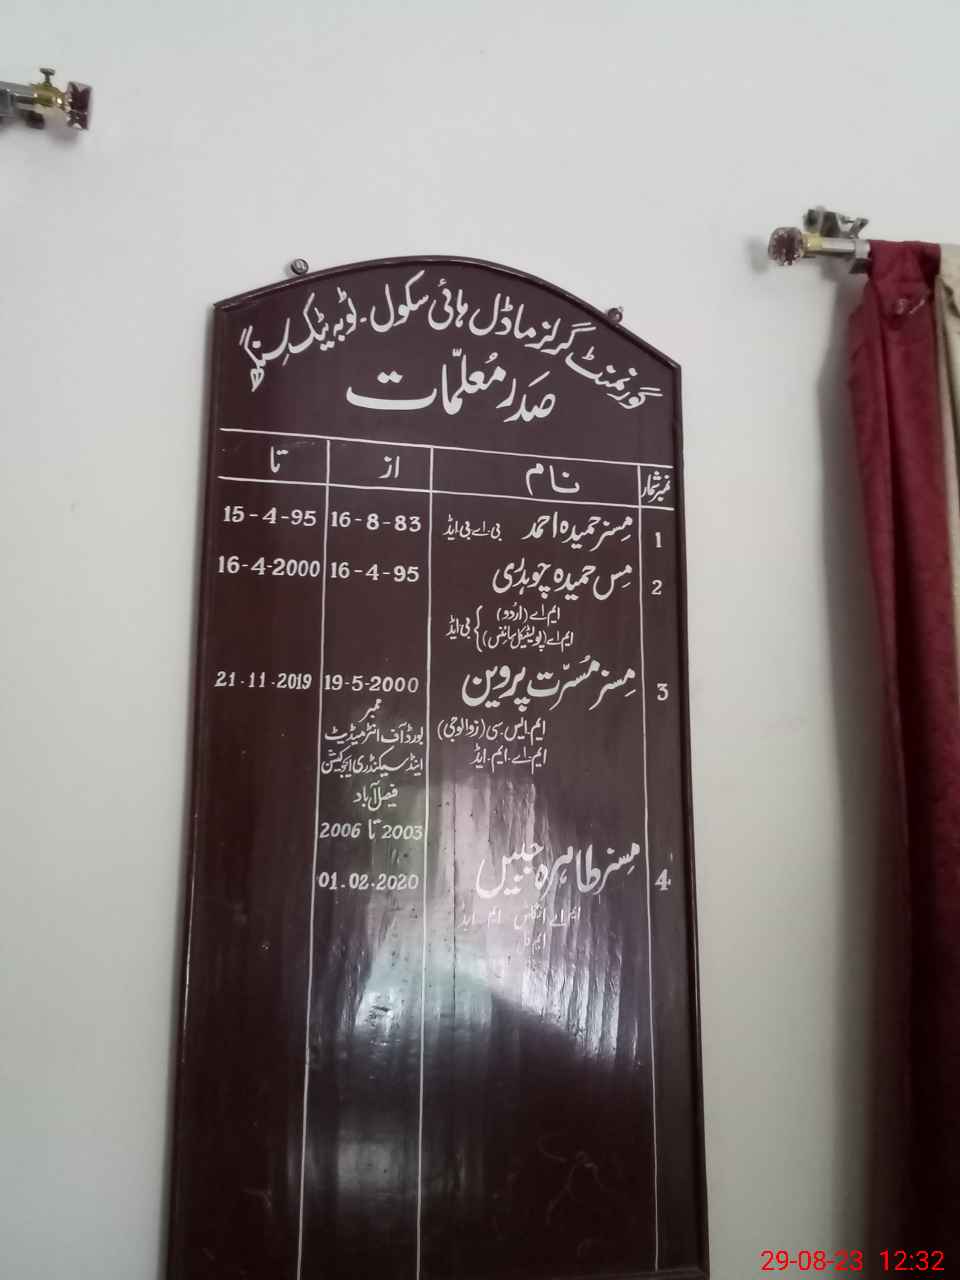 گورنمنٹ گرلز ماڈل ہائی سکول۔ ٹوبہ ٹیک سنگھ
صَدر مُعلّمات
نمبر شمار نام از تا
1 مسز حمیدہ احمد بی۔اے بی ایڈ 16-8-83 15-4-95
2 مِس حمیدہ چوہدری 16-4-95 16-4-2000
ایم اے (اُردو)
ایم اے (پولیٹیکل سائنس) } بی ایڈ
3 مسز مُسرّت پروین 19-5-2000 21.11.2019
ایم۔ایس۔سی (زوالوجی)
ایم۔اے۔ایم۔ایڈ
ممبر
بورڈ آف انٹرمیڈیٹ
اینڈ سیکنڈری ایجوکیشن
فیصل آباد
2003 تا 2006
4 مسز طاہرہ جبیں 01.02.2020
ایم اے انگلش ایم ایڈ
ایم فل
29-08-23 12:32